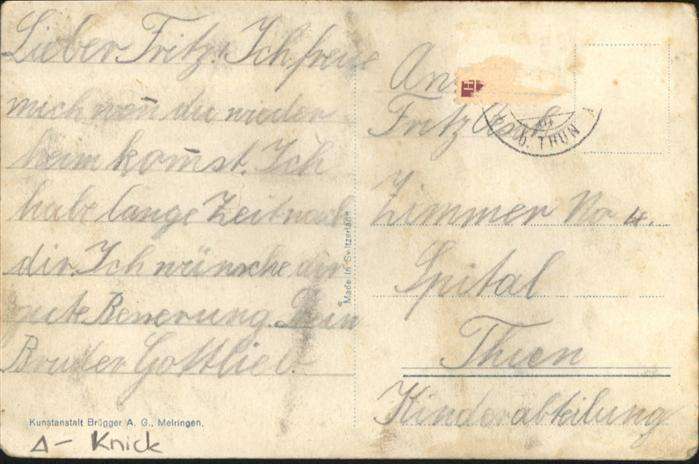 Lieber Fritz! Ich freue
mich wen̄ du wieder
heim kom̄st. Ich
habe lange Zeit nach
dir. Ich wünsche dir
gute Besserung. Dein
Bruder Gottlieb.
Kunstanstalt Brügger A. G., Meiringen.
Δ- Knick
Made in Switzerland
An
Fritz
THUN
Zimmer No 4.
Spital
Thun
Kinderabteilung